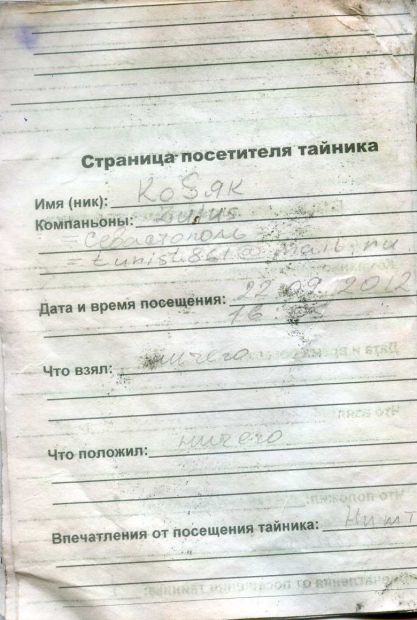 Страница посетителя тайника
Имя (ник): КоSяк
Компаньоны:
= Севастополь
= turist.861@mail.ru
Дата и время посещения: 22.09.2012
16
Что взял: ничего
Что положил: ничего
Впечатления от посещения тайника: